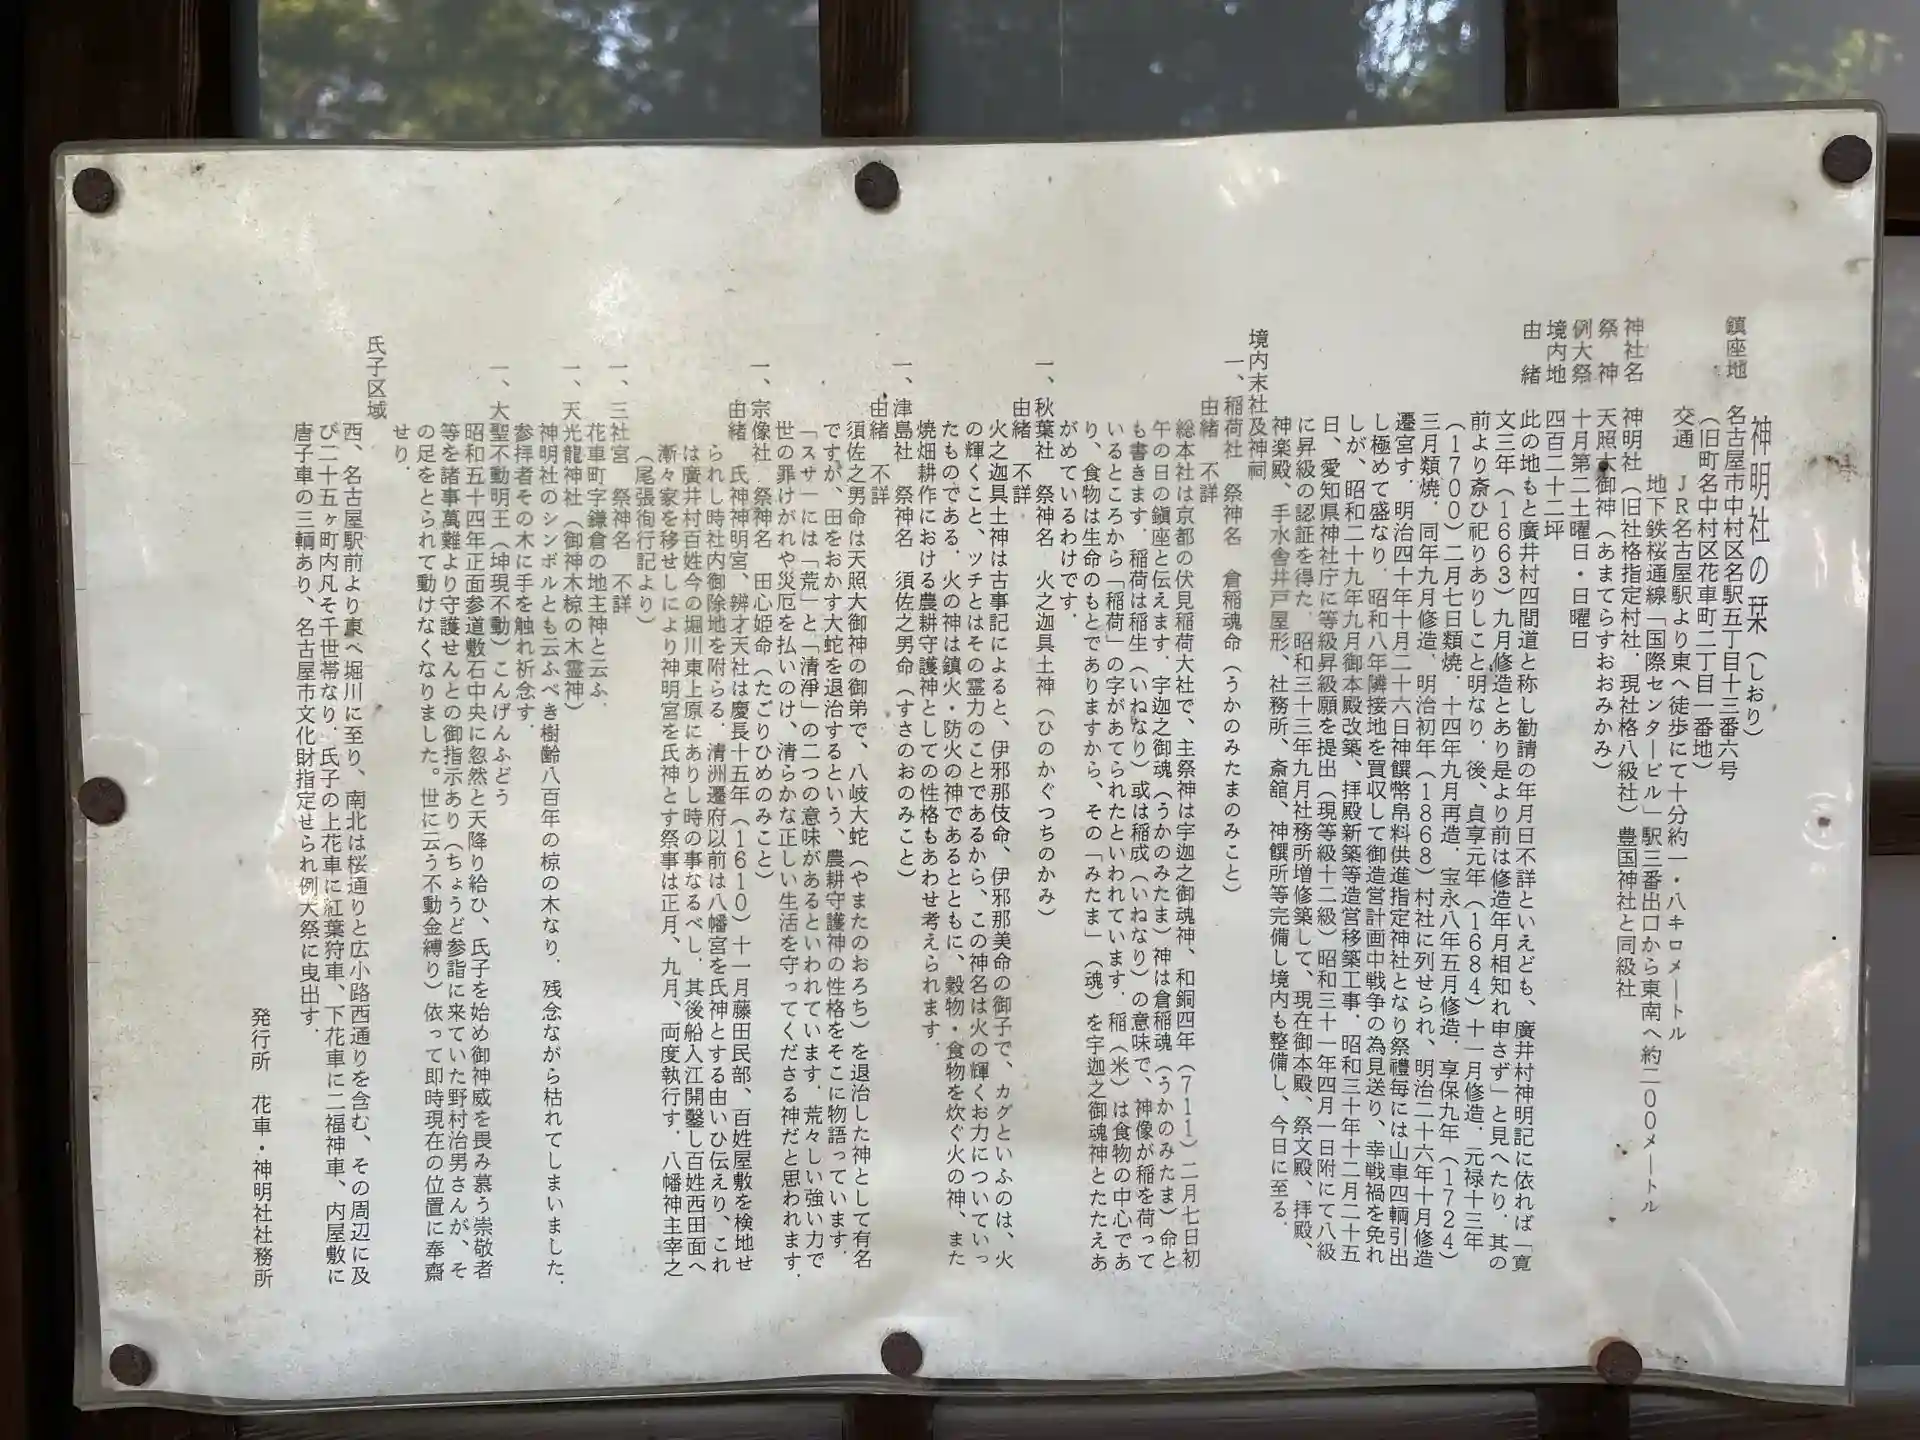 神明社の栞（しおり）
鎮座地　名古屋市中村区名駅五丁目十三番六号
（旧町名中村区花車町二丁目一番地）
交通　ＪＲ名古屋駅より東へ徒歩にて十分約一・八キロメートル
地下鉄桜通線「国際センタービル」駅三番出口から東南へ約二００メートル
神社名　神明社（旧社格指定村社．現社格八級社）豊国神社と同級社
祭　神　天照大御神（あまてらすおおみかみ）
例大祭　十月第二土曜日・日曜日
境内地　四百二十二坪
由　緒　此の地もと廣井村四間道と称し勧請の年月日不詳といえども、廣井村神明記に依れば「寛
文三年（１６６３）九月修造とあり是より前は修造年月相知れ申さず」と見へたり．其の
前より斎ひ祀りありしこと明なり．後、貞享元年（１６８４）十一月修造．元禄十三年
（１７００）二月七日類焼．十四年九月再造．宝永八年五月修造．享保九年（１７２４）
三月類焼．同年九月修造．明治初年（１８６８）村社に列せられ、明治二十六年十月修造
遷宮す．明治四十年十月二十六日神饌幣帛料供進指定神社となり祭禮毎には山車四輌引出
し極めて盛なり．昭和八年隣接地を買収して御造営計画中戦争の為見送り、幸戦禍を免れ
しが、昭和二十九年九月御本殿改築、拝殿新築等造営移築工事．昭和三十年十二月二十五
日、愛知県神社庁に等級昇級願を提出（現等級十二級）昭和三十一年四月一日附にて八級
に昇級の認証を得た．昭和三十三年九月社務所増修築して、現在御本殿、祭文殿、拝殿、
神楽殿、手水舎井戸屋形、社務所、斎舘、神饌所等完備し境内も整備し、今日に至る．
境内末社及神祠
一、稲荷社　祭神名　倉稲魂命（うかのみたまのみこと）
由緒　不詳
総本社は京都の伏見稲荷大社で、主祭神は宇迦之御魂神、和銅四年（７１１）二月七日初
午の日の鎮座と伝えます．宇迦之御魂（うかのみたま）神は倉稲魂（うかのみたま）命と
も書きます．稲荷は稲生（いねなり）或は稲成（いねなり）の意味で、神像が稲を荷って
いるところから「稲荷」の字があてられたといわれています．稲（米）は食物の中心であ
り、食物は生命のもとでありますから、その「みたま」（魂）を宇迦之御魂神とたたえあ
がめているわけです．
一、秋葉社　祭神名　火之迦具土神（ひのかぐつちのかみ）
由緒　不詳
火之迦具土神は古事記によると、伊邪那伎命、伊邪那美命の御子で、カグといふのは、火
の輝くこと、ッチとはその霊力のことであるから、この神名は火の輝くお力についていっ
たものである．火の神は鎮火・防火の神であるとともに、穀物・食物を炊ぐ火の神、また
焼畑耕作における農耕守護神としての性格もあわせ考えられます．
一、津島社　祭神名　須佐之男命（すさのおのみこと）
由緒　不詳
須佐之男命は天照大御神の御弟で、八岐大蛇（やまたのおろち）を退治した神として有名
ですが、田をおかす大蛇を退治するという、農耕守護神の性格をそこに物語っています．
「スサ」には「荒」と「清浄」の二つの意味があるといわれています．荒々しい強い力で
世の罪けがれや災厄を払いのけ、清らかな正しい生活を守ってくださる神だと思われます．
一、宗像社　祭神名　田心姫命（たごりひめのみこと）
由緒　氏神神明宮、辨才天社は慶長十五年（１６１０）十一月藤田民部、百姓屋敷を検地せ
られし時社内御除地を附らる．清洲遷府以前は八幡宮を氏神とする由いひ伝えり、これ
は廣井村百姓今の堀川東上原にありし時の事なるべし．其後船入江開鑿し百姓西田面へ
漸々家を移せしにより神明宮を氏神とす祭事は正月、九月、両度執行す．八幡神主宰之
（尾張徇行記より）
一、三社宮　祭神名　不詳
花車町字鎌倉の地主神と云ふ．
一、天光龍神社（御神木椋の木霊神）
神明社のシンボルとも云ふべき樹齢八百年の椋の木なり．残念ながら枯れてしまいました．
参拝者その木に手を触れ祈念す．
一、大聖不動明王（坤現不動）こんげんふどう
昭和五十四年正面参道敷石中央に忽然と天降り給ひ、氏子を始め御神威を畏み慕う崇敬者
等を諸事萬難より守護せんとの御指示あり（ちょうど参詣に来ていた野村治男さんが、そ
の足をとられて動けなくなりました。世に云う不動金縛り）依って即時現在の位置に奉齋
せり．
氏子区域
西、名古屋駅前より東へ堀川に至り、南北は桜通りと広小路西通りを含む、その周辺に及
び二十五ヶ町内凡そ千世帯なり．氏子の上花車に紅葉狩車、下花車に二福神車、内屋敷に
唐子車の三輌あり、名古屋市文化財指定せられ例大祭に曳出す．
発行所　花車・神明社社務所